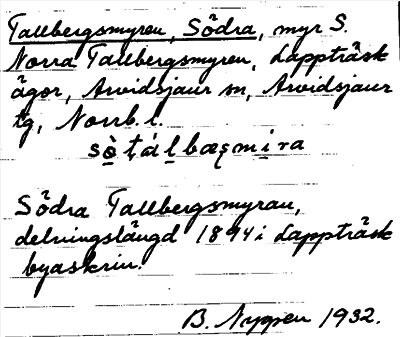 Tallbergsmyren, Södra, myr S.
Norra Tallbergsmyren, Lappträsk
ägor, Arvidsjaur sn, Arvidsjaur
tg, Norrb. l.
Södra Tallbergsmyran,
delningslängd 1894 i Lappträsk
byaskrin.
B. Nygren 1932.